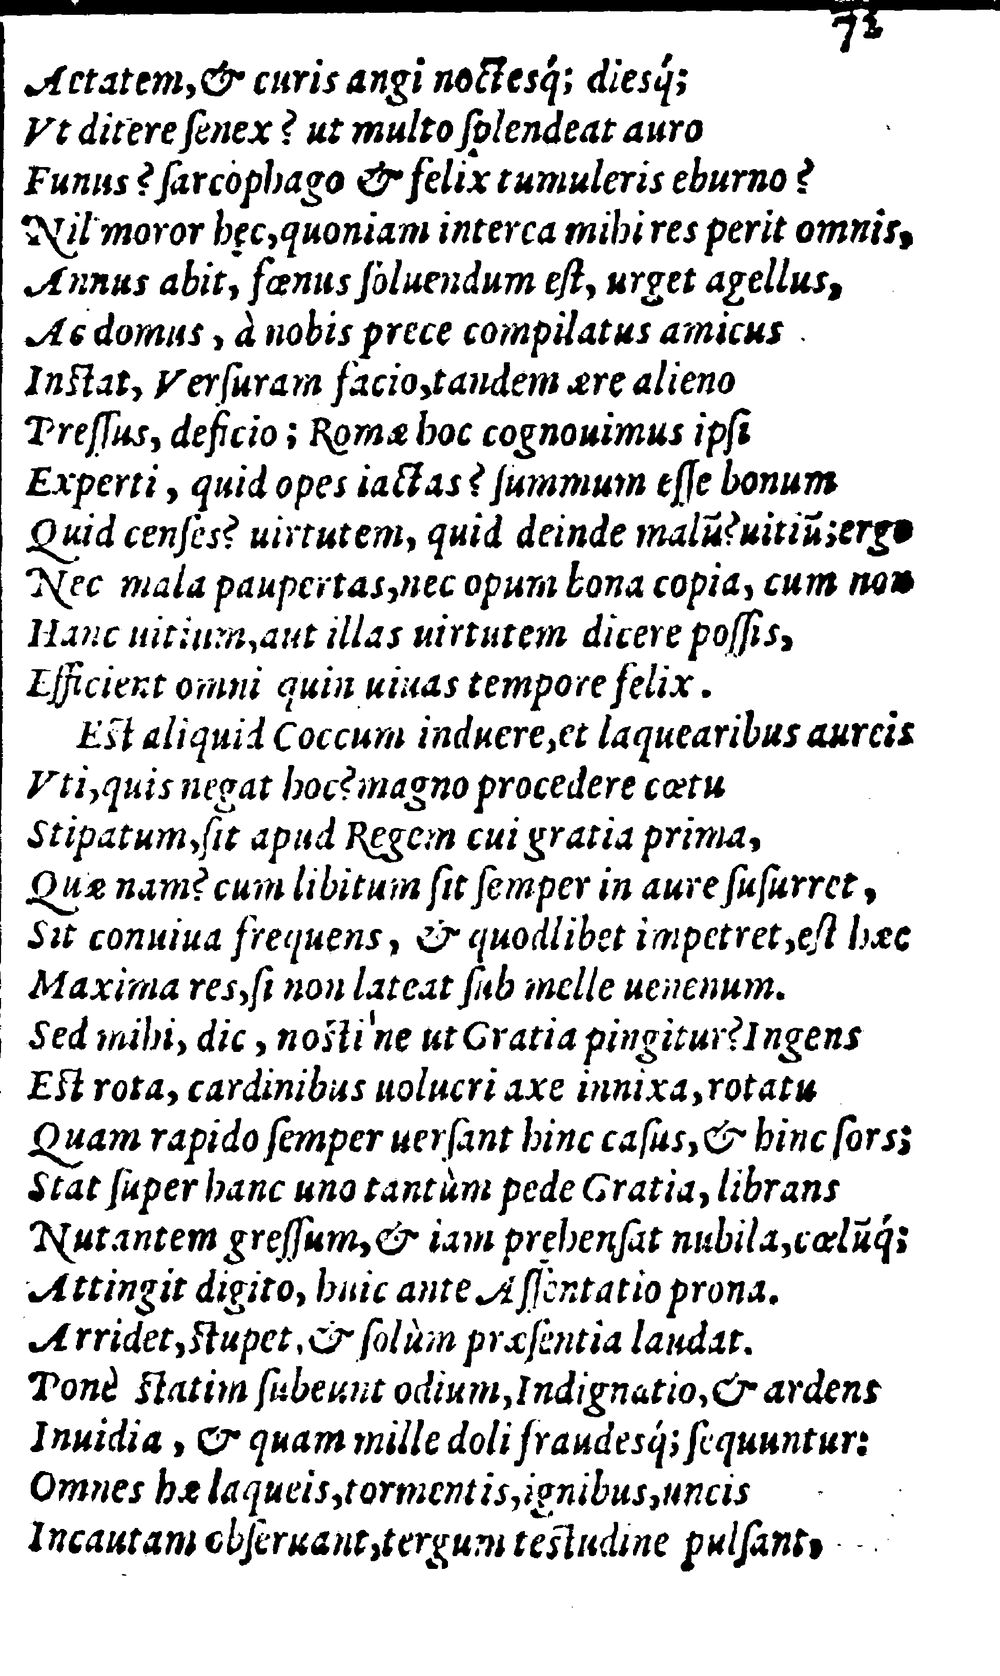 72
Actatem, & curis angi noctesq́; diesq́;
Vt ditere ſenex? ut multo ſplendeat auro
Funus? ſarcophago & felix tumuleris eburno?
Nil moror hęc, quoniam interca mihi res perit omnis,
Annus abit, fœnus ſoluendum eſt, urget agellus,
Ac domus, à nobis prece compilatus amicus
Inſtat, Verſuram facio, tandem ære alieno
Preſſus, deficio; Romæ hoc cognouimus ipſi
Experti, quid opes iactas? ſummum eſſe bonum
Quid cenſes? uirtutem, quid deinde malū? uitiū; ergo
Nec mala paupertas, nec opum bona copia, cum non
Hanc uitium, aut illas uirtutem dicere poſſis,
Efficient omni quin uiuas tempore felix.
Eſt aliquid Coccum induere, et laquearibus aureis
Vti, quis negat hoc? magno procedere cœtu
Stipatum, ſit apud Regem cui gratia prima,
Quæ nam? cum libitum ſit ſemper in aure ſuſurret,
Sit conuiua frequens, & quodlibet impetret, eſt hæc
Maxima res, ſi non lateat ſub melle uenenum.
Sed mihi, dic, noſti'ne ut Gratia pingitur? Ingens
Eſt rota, cardinibus uolucri axe innixa, rotatu
Quam rapido ſemper uerſant hinc caſus, & hinc ſors;
Stat ſuper hanc uno tantùm pede Gratia, librans
Nutantem greſſum, & iam pręhenſat nubila, cœlūq́;
Attingit digito, huic ante Aſſentatio prona.
Arridet, ſtupet, & ſolùm præſentia laudat.
Ponè ſtatim ſubeunt odium, Indignatio, & ardens
Inuidia, & quam mille doli fraudesq́; ſequuntur:
Omnes hæ laqueis, tormentis, ignibus, uncis
Incautam obſeruant, tergum teſtudine pulſant,